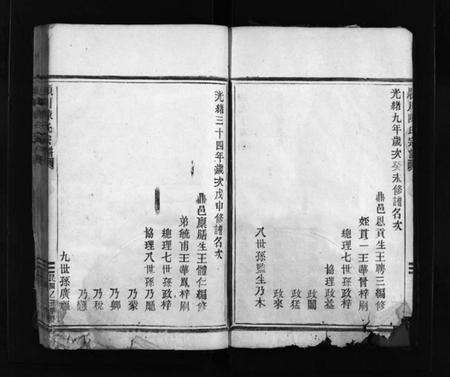 光緒九年歲次癸未修譜名次
鼎邑恩貢生王聘三編修
姪貫一王華曾梓刷
總理七世孫政梓
協理政基
政閣
政猛
政來
八世孫監生乃木
光緒三十四年歲次戊申修譜名次
鼎邑廩膳生王體仁編修
弟毓甫王華鳳梓刷
總理七世孫政梓
協理八世孫乃
乃
乃鄉
乃稅
乃
九世孫廣